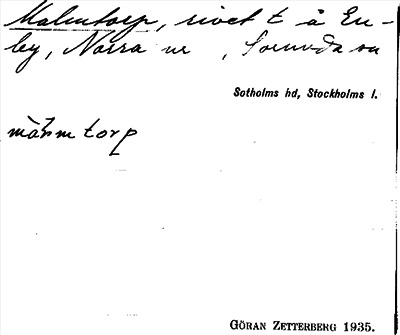 Malmtorp, rivet t å En-
by, Norra nr , Sorunda sn
Sotholms hd, Stockholms l.
màh̀mtorp
GÖRAN ZETTERBERG 1935.